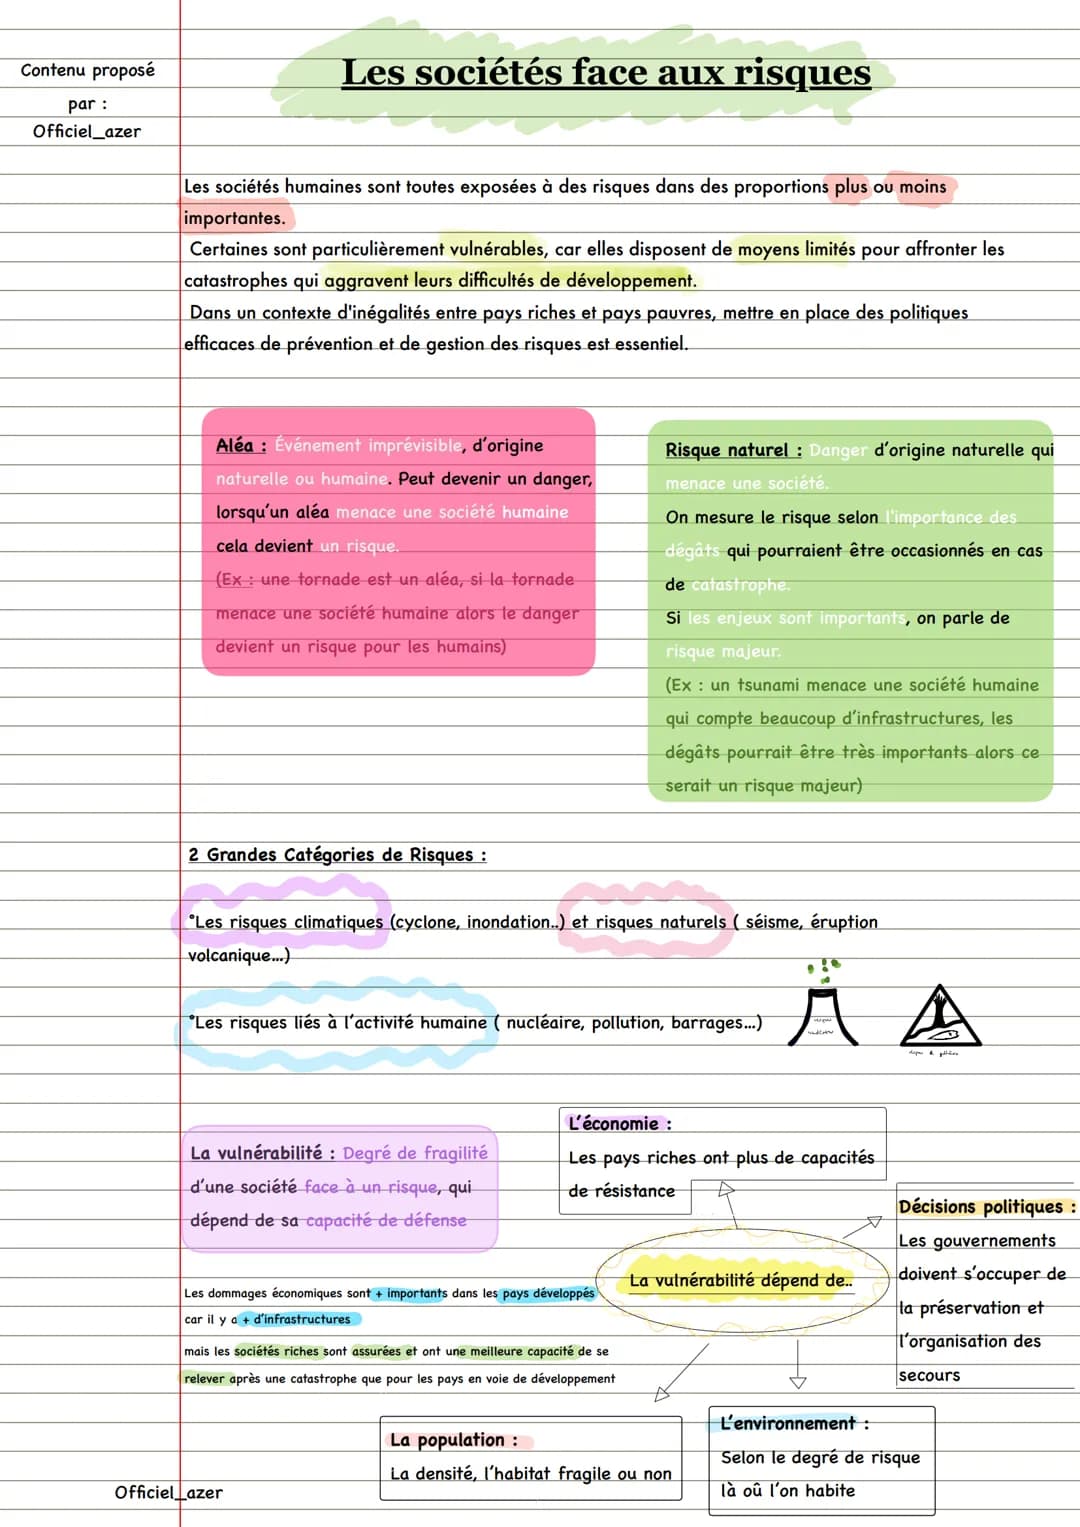 Contenu proposé
par :
Officiel_azer
Les sociétés face aux risques
Les sociétés humaines sont toutes exposées à des risques dans des proportions plus ou moins
importantes.
Certaines sont particulièrement vulnérables, car elles disposent de moyens limités pour affronter les
catastrophes qui aggravent leurs difficultés de développement.
Dans un contexte d'inégalités entre pays riches et pays pauvres, mettre en place des politiques
efficaces de prévention et de gestion des risques est essentiel.
Aléa : Événement imprévisible, d'origine
naturelle ou humaine. Peut devenir un danger,
lorsqu'un aléa menace une société humaine
cela devient un risque.
(Ex : une tornade est un aléa, si la tornade
menace une société humaine alors le danger
devient un risque pour les humains)
Risque naturel : Danger d'origine naturelle qui
menace une société.
On mesure le risque selon l'importance des
dégâts qui pourraient être occasionnés en cas
de catastrophe.
Si les enjeux sont importants, on parle de
risque majeur.
(Ex : un tsunami menace une société humaine
qui compte beaucoup d'infrastructures, les
dégâts pourrait être très importants alors ce
serait un risque majeur)
2 Grandes Catégories de Risques :
°Les risques climatiques (cyclone, inondation..) et risques naturels ( séisme, éruption
volcanique...)
°Les risques liés à l'activité humaine ( nucléaire, pollution, barrages...)
La vulnérabilité : Degré de fragilité
d'une société face à un risque, qui
dépend de sa capacité de défense
L'économie :
Les pays riches ont plus de capacités
de résistance
Décisions politiques :
Les gouvernements
doivent s'occuper de
la préservation et
l'organisation des
secours
La vulnérabilité dépend de..
Les dommages économiques sont + importants dans les pays développés
car il y a + d'infrastructures
mais les sociétés riches sont assurées et ont une meilleure capacité de se
relever après une catastrophe que pour les pays en voie de développement
La population :
La densité, l'habitat fragile ou non
L'environnement :
Selon le degré de risque
là oû l'on habite
Officiel_azer